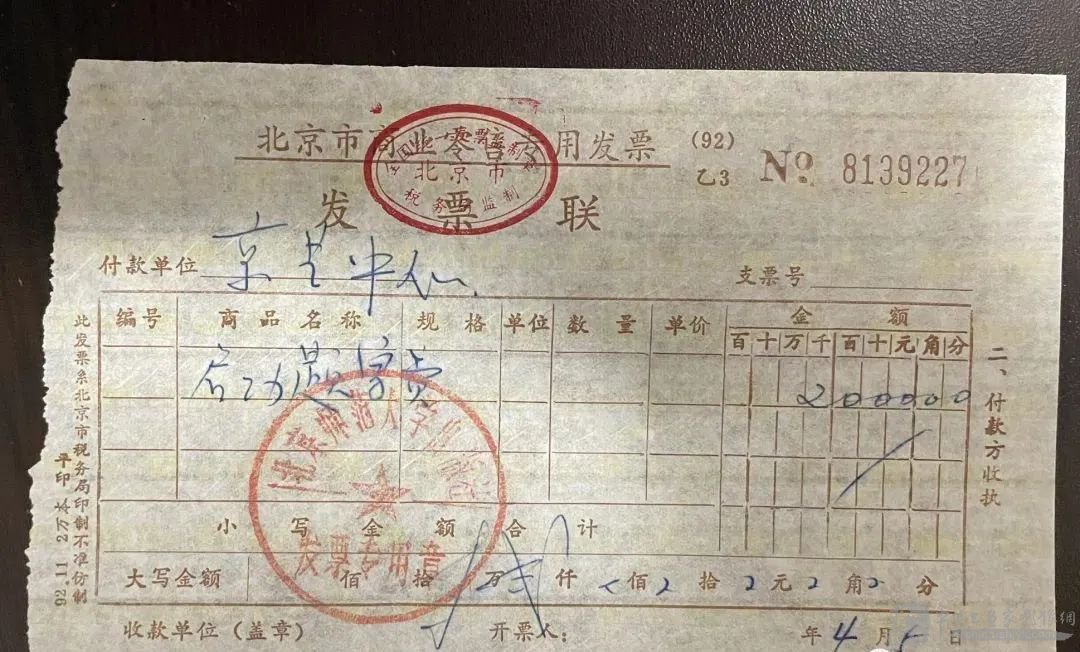 北京市商业零售专用发票
(92)
乙3
№ 8139227
全国统一发票监制章
北京市
税务局监制
发票联
付款单位
支票号
编号 商品名称 规格 单位 数量 单价 金额
百十万千百十元角分
题字费
200000
北京师范大学
发票专用章
小写金额合计
大写金额 佰 拾 万 仟 佰 拾 元 角 分
收款单位(盖章) 开票人: 年 4 月 5 日
二、付款方收执
此发票系北京市税务局印制不准仿制
92.11 2万本 平印